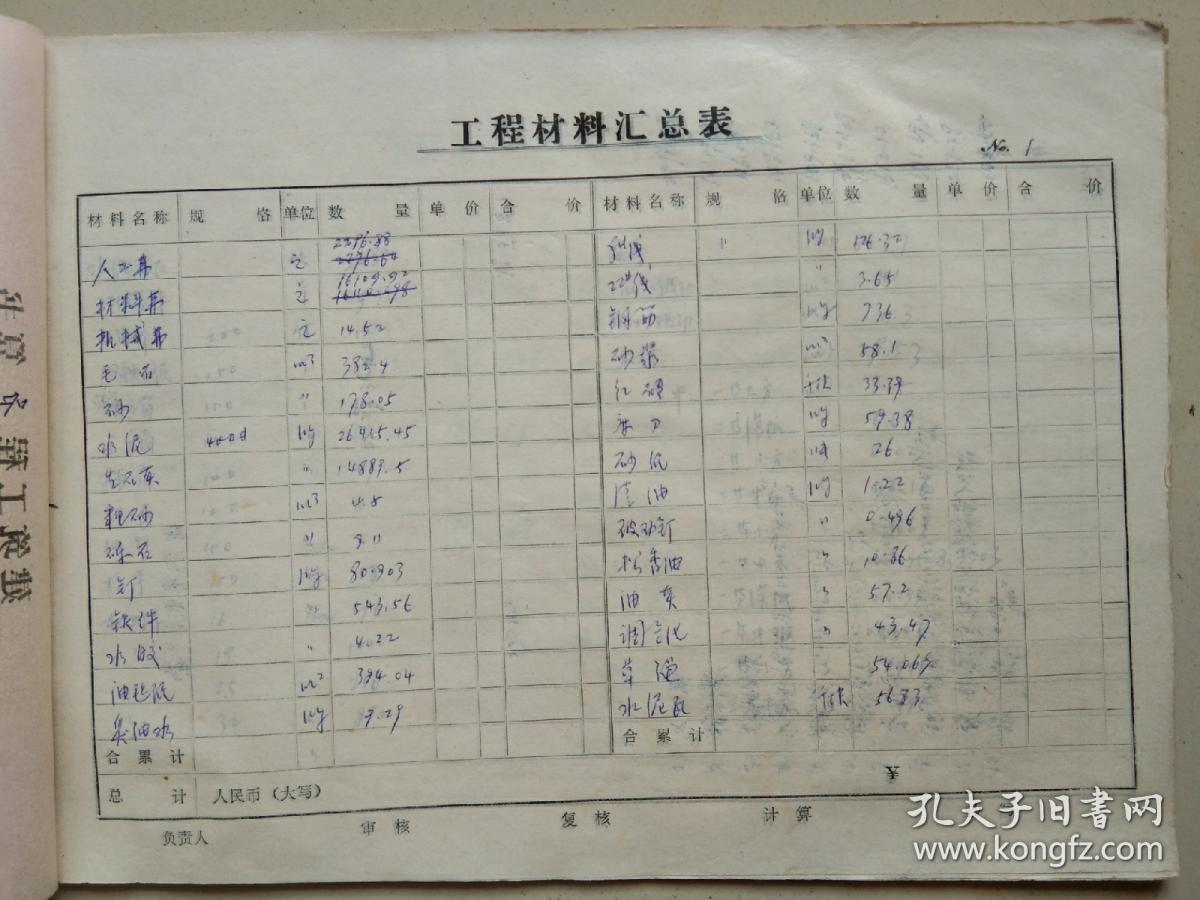 工程材料汇总表
No. 1
材料名称 规格 单位 数量 单价 合价 材料名称 规格 单位 数量 单价 合价
人工费 元 2296.88 〃 kg 126.32
材料费 元 16109.92 22#线 〃 3.65
机械费 元 14.52 钢筋 kg 736
毛石 m³ 383.4 砂浆 m³ 58.1
砂 〃 178.05 红砖 千块 33.39
水泥 400# kg 26415.45 kg 59.38
生石灰 〃 14889.5 砂纸 26
粗砂 m³ 4.8 清油 kg 1.22
砾石 〃 9.11 玻璃钉 〃 0.496
钉 kg 80.903 松香油 〃 10.86
铁件 〃 543.56 油灰 〃 57.2
水胶 〃 4.22 调合漆 〃 43.47
油毡纸 m² 384.04 草 〃
臭油水 kg 9.29 水泥瓦 千块 5.683
合累计 合累计
总计 人民币（大写） ¥
负责人 审核 复核 计算
孔夫子旧书网
www.kongfz.com